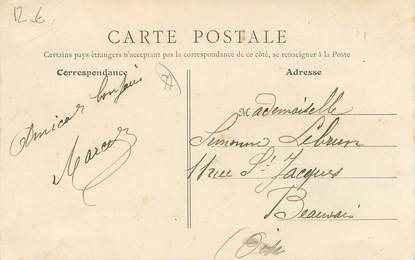 12 €
CARTE POSTALE
Certains pays étrangers n'acceptant pas la correspondance de ce côté, se renseigner à la Poste
Correspondance
Adresse
Amical bonjour
Marcel
Mademoiselle
Simonne Lebrun
11 rue St Jacques
Beauvais
(Oise)